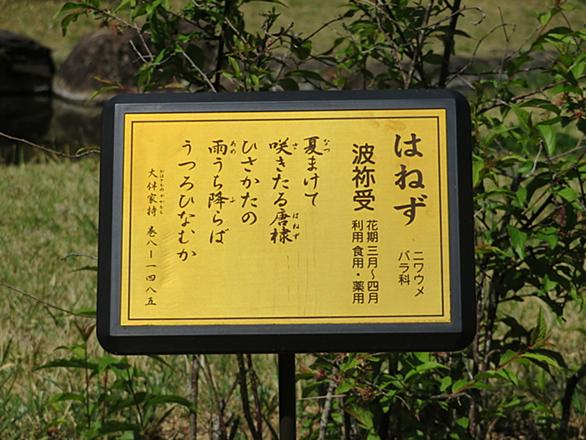 はねず
ニワウメ
バラ科
波祢受
花期 三月〜四月
利用 食用・薬用
夏まけて
咲きたる唐棣
ひさかたの
雨うち降らば
うつろひなむか
大伴家持 巻八ー一四八五